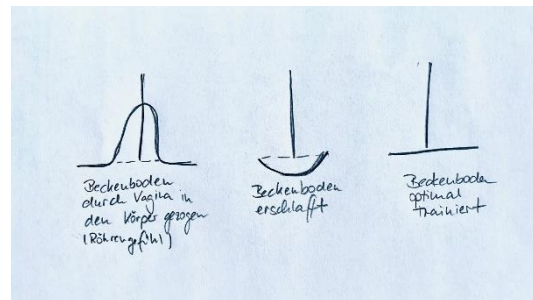 Beckenboden
durch Vagina in
den Körper gezogen
(Röhrengefühl)
Beckenboden
erschlafft
Beckenboden
optimal
trainiert